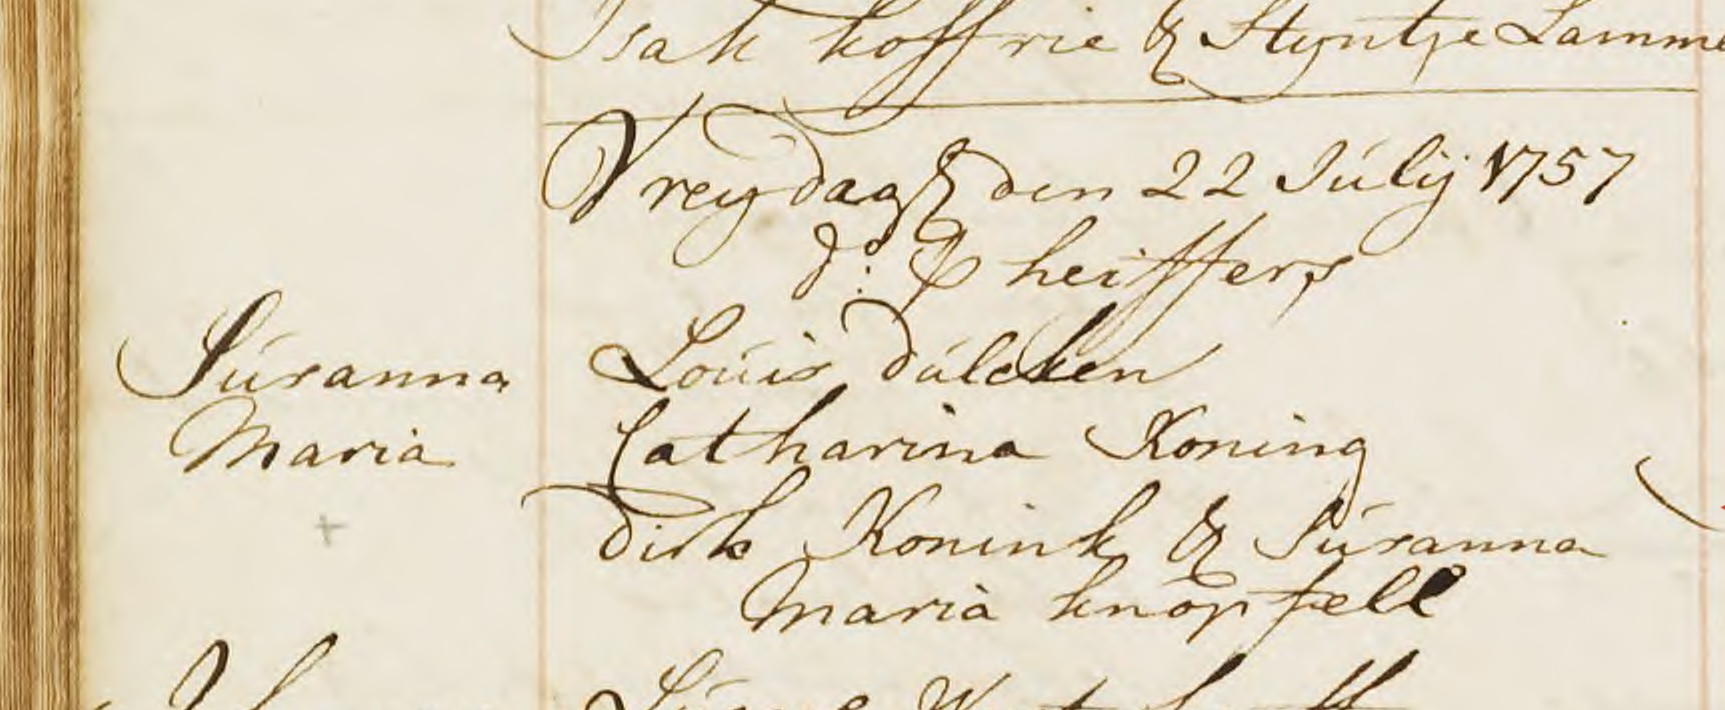 Isak koffrie & Styntje Lamme
Vreydag den 22 Júlij 1757
d:o Pheiffers
Súsanna Loúis dúlcken
Maria Catharina Koning
dirk Konink & Súsanna
Maria knöpfell